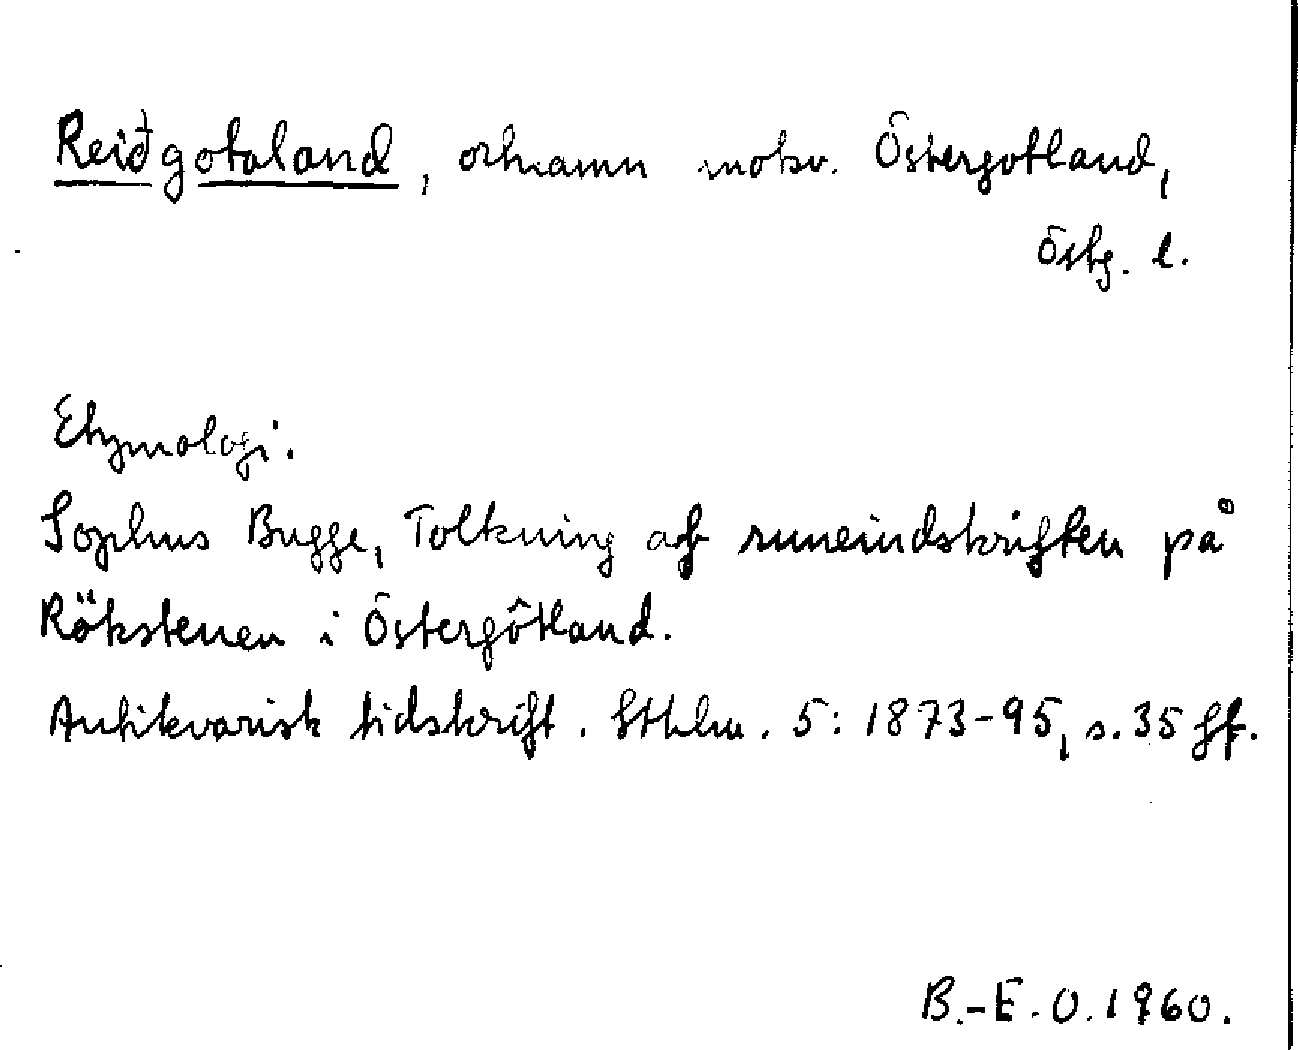 Reiðgotaland, ortnamn motsv. Östergötland,
Östg. l.
Etymologi.
Sophus Bugge, Tolkning af runeindskriften på
Rökstenen i Östergötland.
Antikvarisk tidskrift. Sthlm. 5: 1873-95, s. 35 ff.
B.-E. O. 1960.